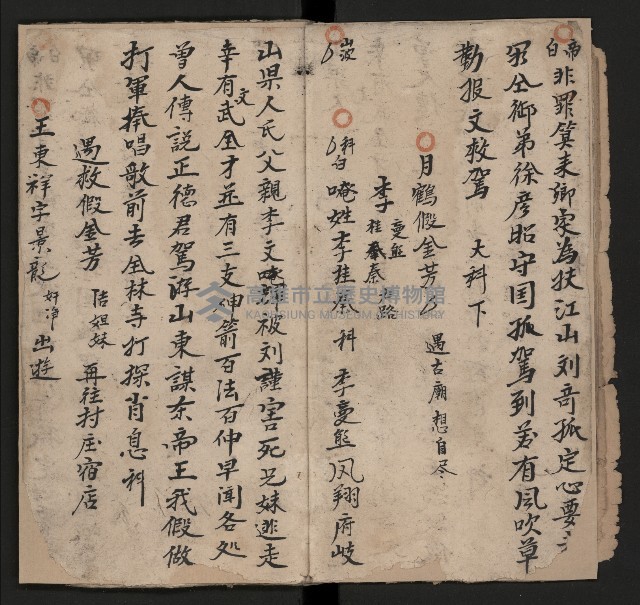 帝白 非罪箕耒卿家為扶江山刘奇孤定心要
公御弟徐彦昭守国孤駕到若有風吹草
動报文救駕 大科下
月鶴假金芳 遇古廟想自尽
李 曼熊 桂 秦 路
山坡
科白 唵姓李桂 科 李曼熊鳳翔府岐
山県人氏父親李文 被刘謹害死兄妹逃走
幸有文武全才並有三支神箭百法百仲早聞各处
曾人傳説正德君駕游山東謀奈帝王我假做
打渾捧唱歌前去全林寺打探肖息科
遇救假金芳 结姐妹 再往村庄宿店
王東祥字景龍 奸净 出遊
高雄市立歷史博物館
KAOHSIUNG MUSEUM OF HISTORY